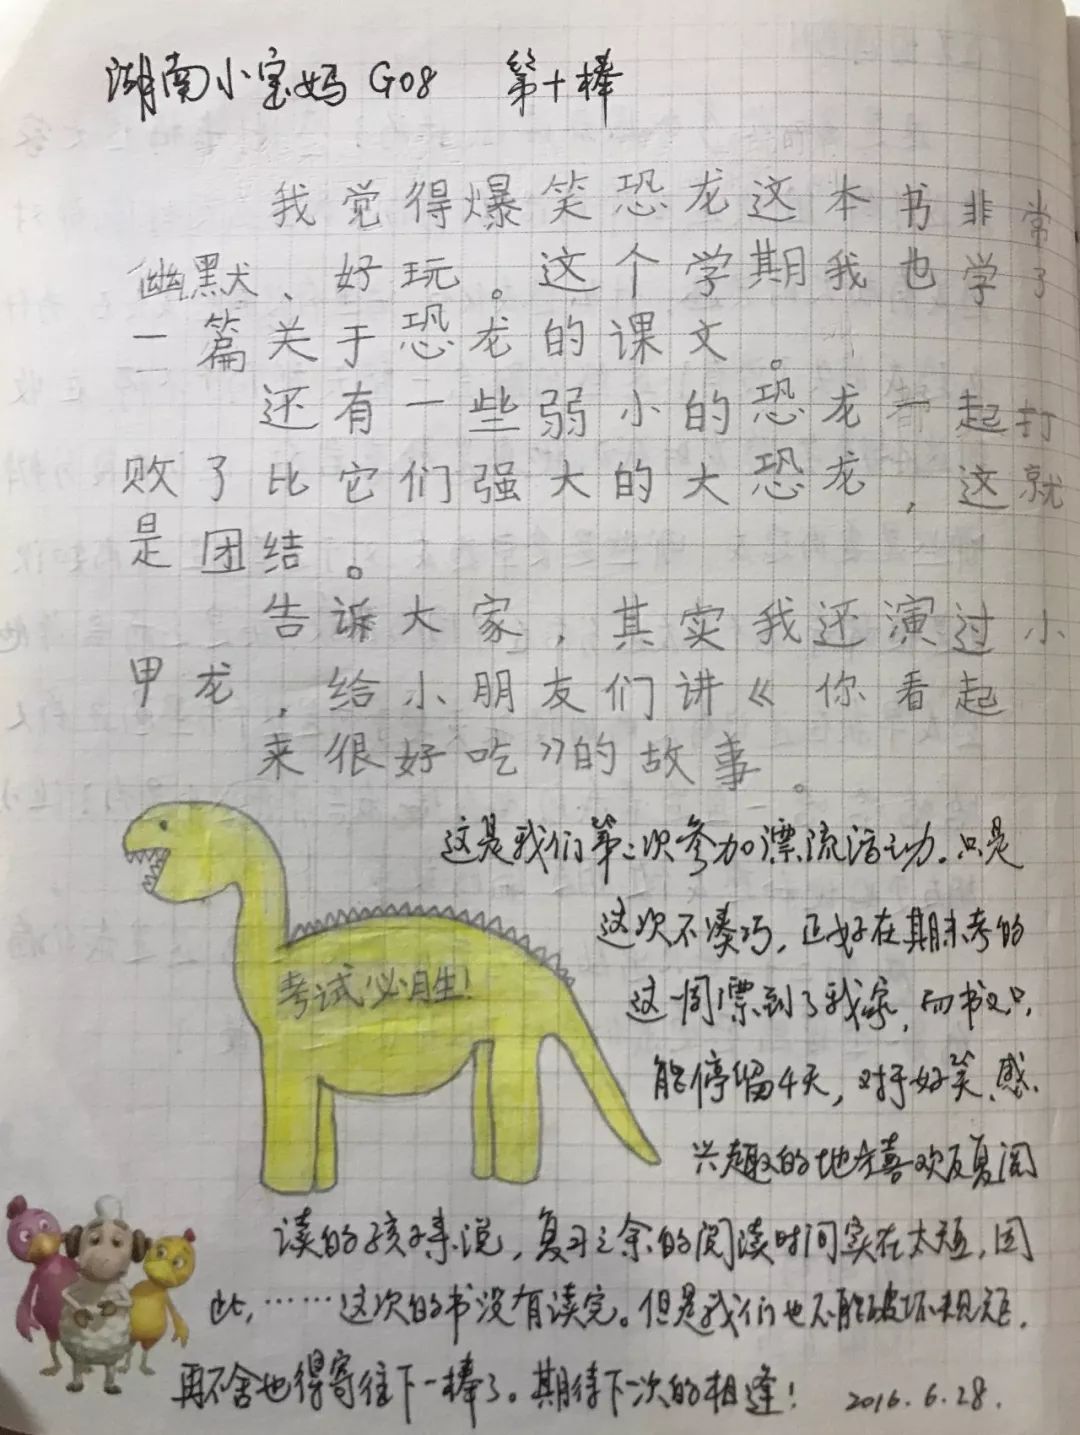 湖南小宝妈 G08 第十棒
我觉得爆笑恐龙这本书非常
幽默、好玩。这个学期我也学了
一篇关于恐龙的课文。
还有一些弱小的恐龙一起打
败了比它们强大的大恐龙，这就
是团结。
告诉大家，其实我还演过小
甲龙，给小朋友们讲《你看起
来很好吃》的故事。
这是我们第二次参加漂流活动。只是
这次不凑巧，正好在期末考的
考试必胜！
这一周漂到了我家，而书又只
能停留4天，对于好笑、感
兴趣的地方喜欢反复阅
读的孩子来说，复习之余的阅读时间实在太短，因
此，……这次的书没有读完。但是我们也不能破坏规矩，
再不舍也得寄往下一棒了。期待下一次的相逢！ 2016.6.28.